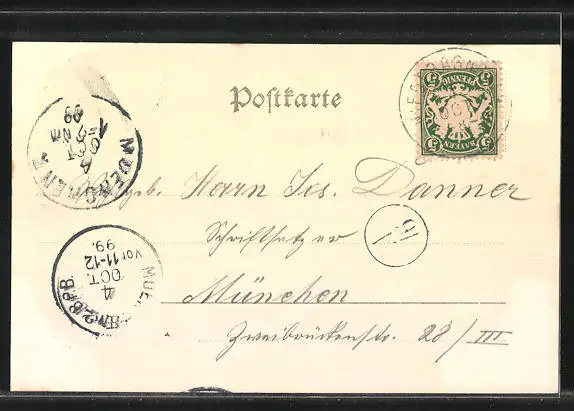 Postkarte
5 PFENNIG 5
5 BAYERN 5
MUENCHEN 2
4
OCT
99
Herrn Jos. Danner
Schriftsetzer
München
Zweibrückenstr. 28/III
4
OCT.
Vor 11-12
99.